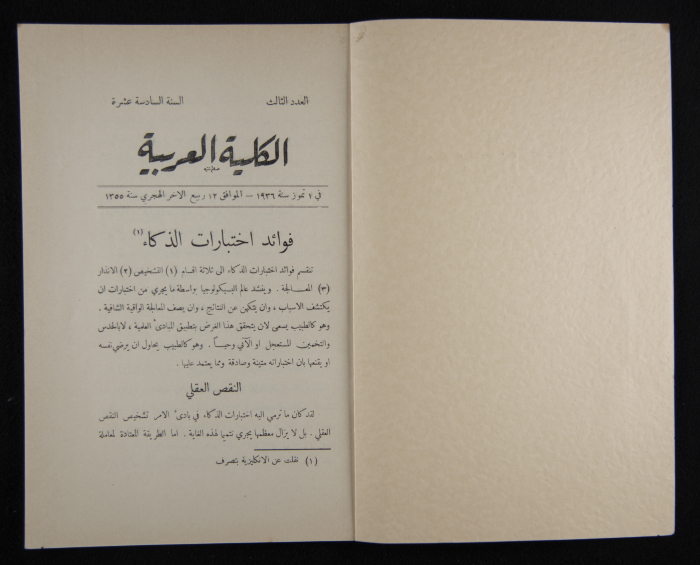 العدد الثالث السنة السادسة عشرة
الكلية العربية
في ١ تموز سنة ١٩٣٦ — الموافق ١٢ ربيع الاخر الهجري سنة ١٣٥٥
فوائد اختبارات الذكاء (١)
تنقسم فوائد اختبارات الذكاء الى ثلاثة اقسام (١) التشخيص (٢) الانذار
(٣) المعالجة . ويقصد عالم السيكولوجيا بواسطة ما يجري من اختبارات ان
يكتشف الاسباب ، وان يتكهن عن النتائج ، وان يصف المعالجة الواقية الشافية .
وهو كالطبيب يسعى لان يتحقق هذا الغرض بتطبيق المبادئ العلمية ، لا بالحدس
والتخمين المستعجل او الآتي وحياً . وهو كالطبيب يحاول ان يرضي نفسه
او يقنعها بان اختباراته متينة وصادقة ومما يعتمد عليها .
النقص العقلي
لقد كان ما ترمي اليه اختبارات الذكاء في بادئ الامر تشخيص النقص
العقلي . بل لا يزال معظمها يجري لهذه الغاية . اما الطريقة المعتادة لمعاملة
(١) نقلت عن الانكليزية بتصرف